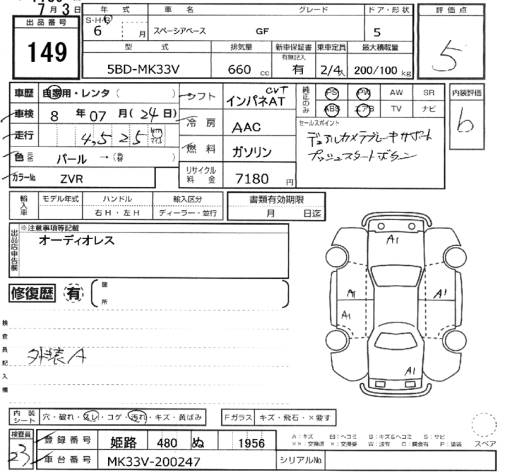 7月3日
出品番号
149
年式 車名 グレード ドア・形状
S・H・R
6 月 スペーシアベース GF 5
型式 排気量 新車保証書 有無記入 乗車定員 最大積載量
5BD-MK33V 660 cc 有 2/4人 200/100 kg
評価点
5
車歴 自家用・レンタ( )
車検 8 年 07 月 (24日)
走行 4,525 km
色 パール → (替 )
カラーNo ZVR
シフト CVT インパネAT
冷房 AAC
燃料 ガソリン
リサイクル料金 7180 円
純正のみ PS PW AW SR
ABS エアB TV ナビ
セールスポイント
デュアルカメラブレーキサポート
プッシュスタートボタン
内装評価
b
輸入車 モデル年式 ハンドル 輸入区分
右H・左H ディーラー・並行
書類有効期限
月 日迄
出品店申告欄
※注意事項等記載
オーディオレス
修復歴 有 箇所
検査員記入欄
外装A
A1
A1
A1
A1
A1
内装シート 穴・破れ・なし・コゲ・汚れ・キズ・黄ばみ
Fガラス キズ・飛石・×要す
検査員
23
登録番号 姫路 480 ぬ 1956
車台番号 MK33V-200247
シリアルNo
スペア